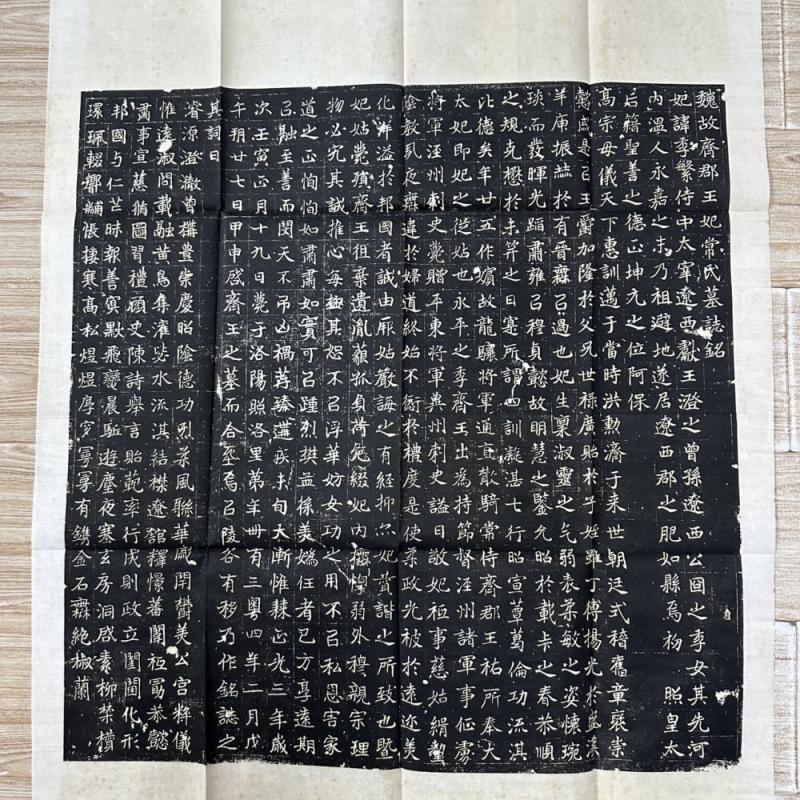 魏故齊郡王妃常氏墓誌銘
妃諱季繁侍中太宰遼西獻王澄之曾孫遼西公囧之季女其先河
內溫人永嘉之末乃祖避地遂居遼西郡之肥如縣焉初 照皇太
后籍聖善之德正坤元之位阿保
高宗母儀天下惠訓邁于當時洪勳濟于来世朝廷式稽舊章襃崇
懿戚是㠯王爵加隆於父兄世祿廣貽於子姪雖丁傅揚光於盛漢
羊庾振赫於有晉蔑㠯過也妃生稟淑靈之氣弱表柔敏之姿懷琬
琰而發暉光蹈肅雍㠯穆貞懿故明慧之鑒允昭於載卡之春恭順
之規克懋於未笄之日寔所謂四訓凝湛七行昭宣葛倫功流淇
比德矣年廿五作嬪故龍驤將軍通直散騎常侍齊郡王祐所奉大
太妃即妃之從姑也永平之季齊王出為持節督涇州諸軍事征虜
將軍涇州刺史薨贈平東將軍兗州刺史謚曰敬妃祗事慈姑緝釐
陰教夙夜無違於婦道終始不愆於禮度是使柔政光被於遠迩美
化洋溢於邦國者誠由厥姑嚴誨之有經抑亦妃賛諧之所致也暨
妃姑薨殯齊王徂棄遺胤藐孤負荷危綴妃內撫惸弱外穆親宗理
物必究其誠推心每極其恕不㠯浮華妨女功之用不㠯私恩害家
道之正恂恂如肅肅如實可㠯踵烈樊徐美任者已方享遠期
㠯融至善而閔天不吊凶禍荐臻遘疾未旬大漸惟棘正光三年歲
次壬寅正月十九日薨于洛陽照洛里第年卌有三粵四年二月戊
午朔廿七日甲申啓齊王之墓而合窆焉㠯陵谷有移乃作銘誌之
其詞曰
濬源澄澈曾構豊崇慶昭陰德功列桒風聯華慼閈賛美公宮粹儀
惟遠淑問載融黄鳥集灌水流淇結襟遼館釋憬蕃闈祗勗恭懿
肅事宣慈脩圖習禮顧史陳詩舉言貽範率行成則政立閨闈化形
邦國与仁芒昧報善冥默飛鸞晨駈逝夜玄房洞慼素柳榮櫝
環珮輟響帳棲寒高松煜煜厚夜寥寥有鐫金石無絶椒蘭